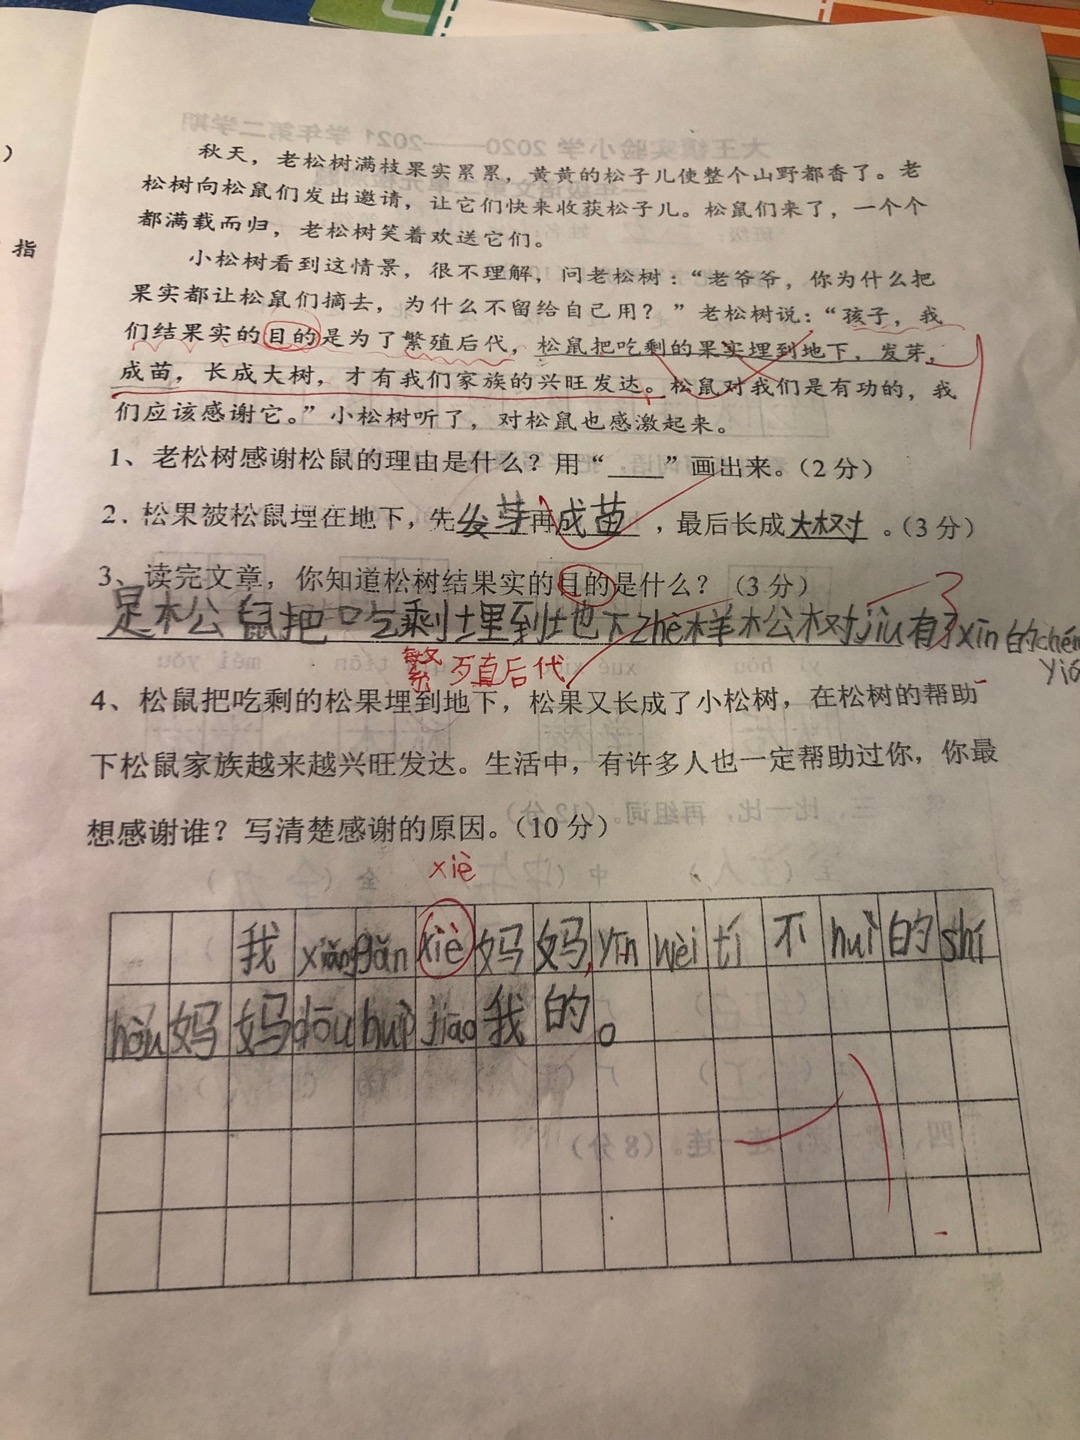 )
指
秋天，老松树满枝果实累累，黄黄的松子儿使整个山野都香了。老
松树向松鼠们发出邀请，让它们快来收获松子儿。松鼠们来了，一个个
都满载而归，老松树笑着欢送它们。
小松树看到这情景，很不理解，问老松树：“老爷爷，你为什么把
果实都让松鼠们摘去，为什么不留给自己用？”老松树说：“孩子，我
们结果实的目的是为了繁殖后代，松鼠把吃剩的果实埋到地下，发芽，
成苗，长成大树，才有我们家族的兴旺发达。松鼠对我们是有功的，我
们应该感谢它。”小松树听了，对松鼠也感激起来。
1、老松树感谢松鼠的理由是什么？用“____”画出来。（2分）
2．松果被松鼠埋在地下，先发芽再成苗，最后长成大树。（3分）
3、读完文章，你知道松树结果实的目的是什么？（3分）
3
是松鼠把吃剩埋到地下zhè样松树jiù有xīn的chéng
繁殖后代
4、松鼠把吃剩的松果埋到地下，松果又长成了小松树，在松树的帮助
下松鼠家族越来越兴旺发达。生活中，有许多人也一定帮助过你，你最
想感谢谁？写清楚感谢的原因。（10分）
xiè
我xiǎnggǎnxiè妈妈,yīnwèití不huì的shí
hòu妈妈dōuhuìjiāo我的。